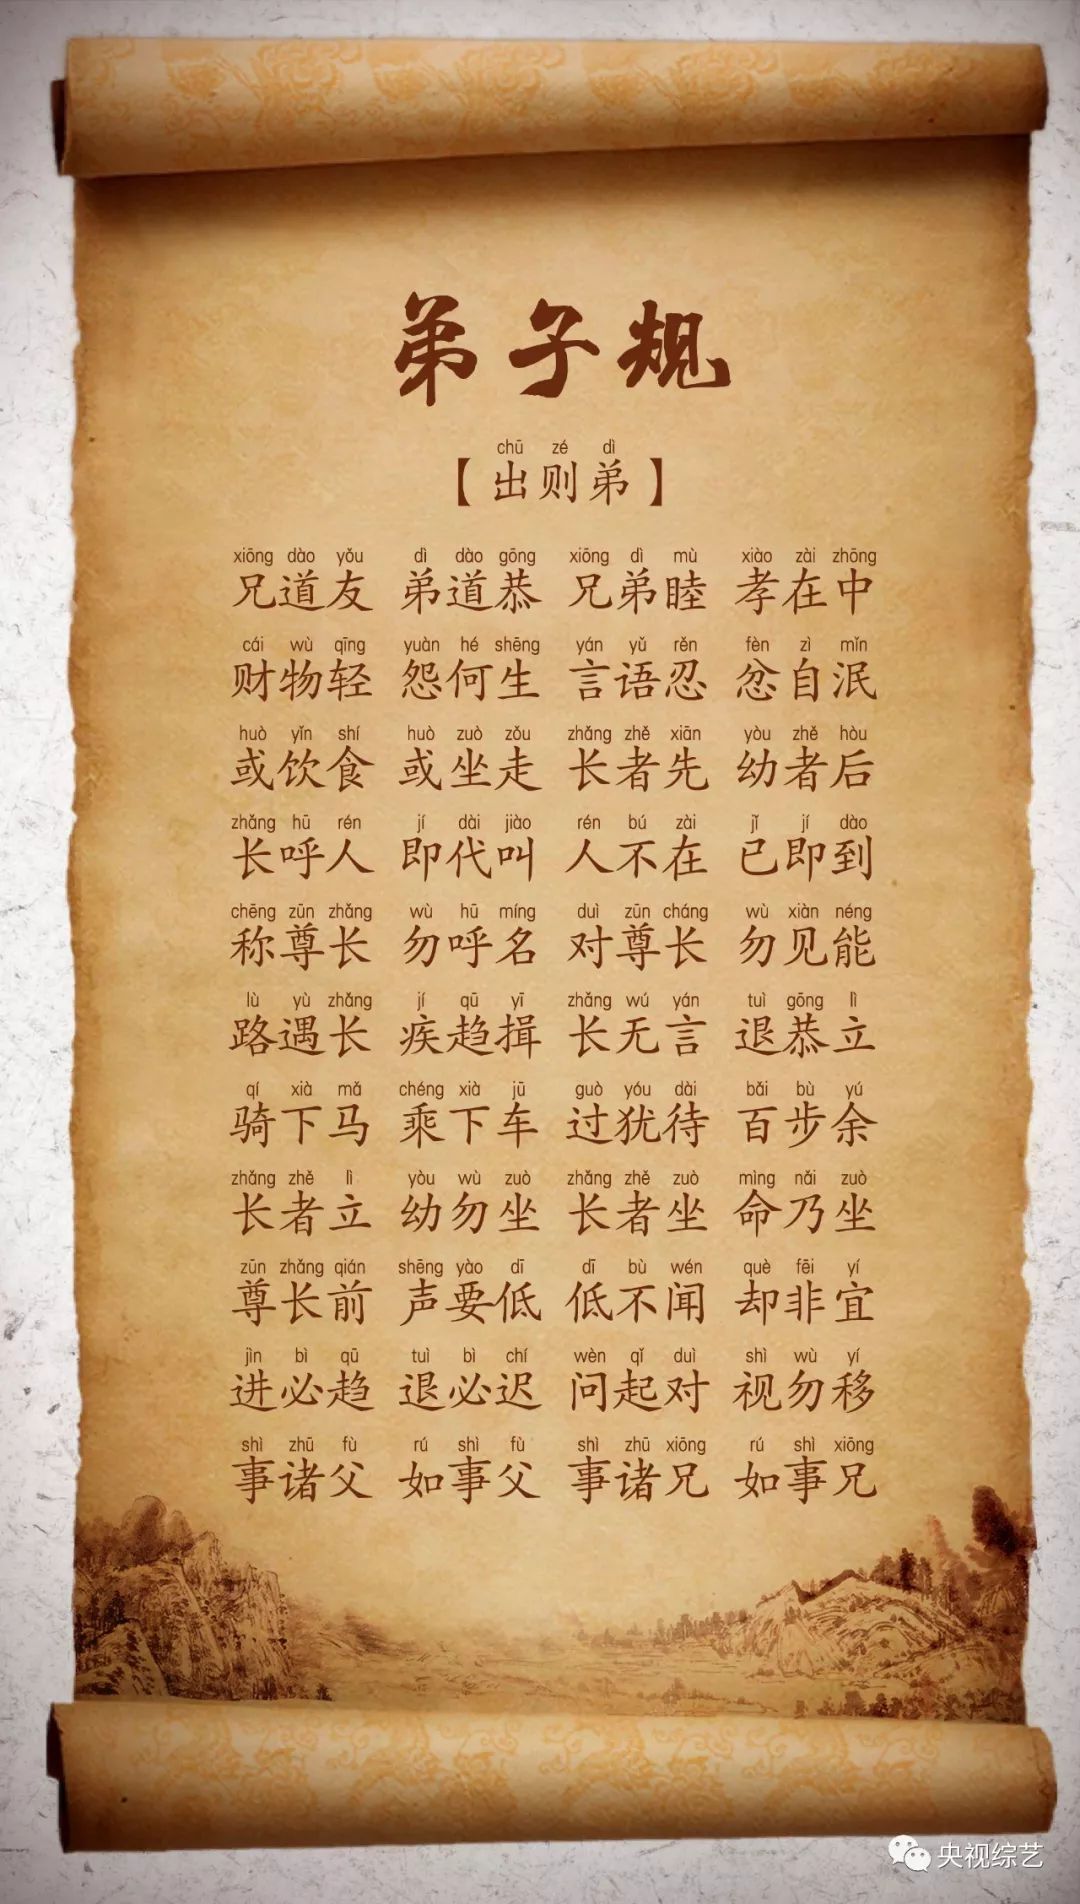 弟子规
chū zé dì
【出则弟】
xiōng dào yǒu dì dào gōng xiōng dì mù xiào zài zhōng
兄道友 弟道恭 兄弟睦 孝在中
cái wù qīng yuàn hé shēng yán yǔ rěn fèn zì mǐn
财物轻 怨何生 言语忍 忿自泯
huò yǐn shí huò zuò zǒu zhǎng zhě xiān yòu zhě hòu
或饮食 或坐走 长者先 幼者后
zhǎng hū rén jí dài jiào rén bú zài jǐ jí dào
长呼人 即代叫 人不在 已即到
chēng zūn zhǎng wù hū míng duì zūn cháng wù xiàn néng
称尊长 勿呼名 对尊长 勿见能
lù yù zhǎng jí qū yī zhǎng wú yán tuì gōng lì
路遇长 疾趋揖 长无言 退恭立
qí xià mǎ chéng xià jū guò yóu dài bǎi bù yú
骑下马 乘下车 过犹待 百步余
zhǎng zhě lì yòu wù zuò zhǎng zhě zuò mìng nǎi zuò
长者立 幼勿坐 长者坐 命乃坐
zūn zhǎng qián shēng yào dī dī bù wén què fēi yí
尊长前 声要低 低不闻 却非宜
jìn bì qū tuì bì chí wèn qǐ duì shì wù yí
进必趋 退必迟 问起对 视勿移
shì zhū fù rú shì fù shì zhū xiōng rú shì xiōng
事诸父 如事父 事诸兄 如事兄
央视综艺